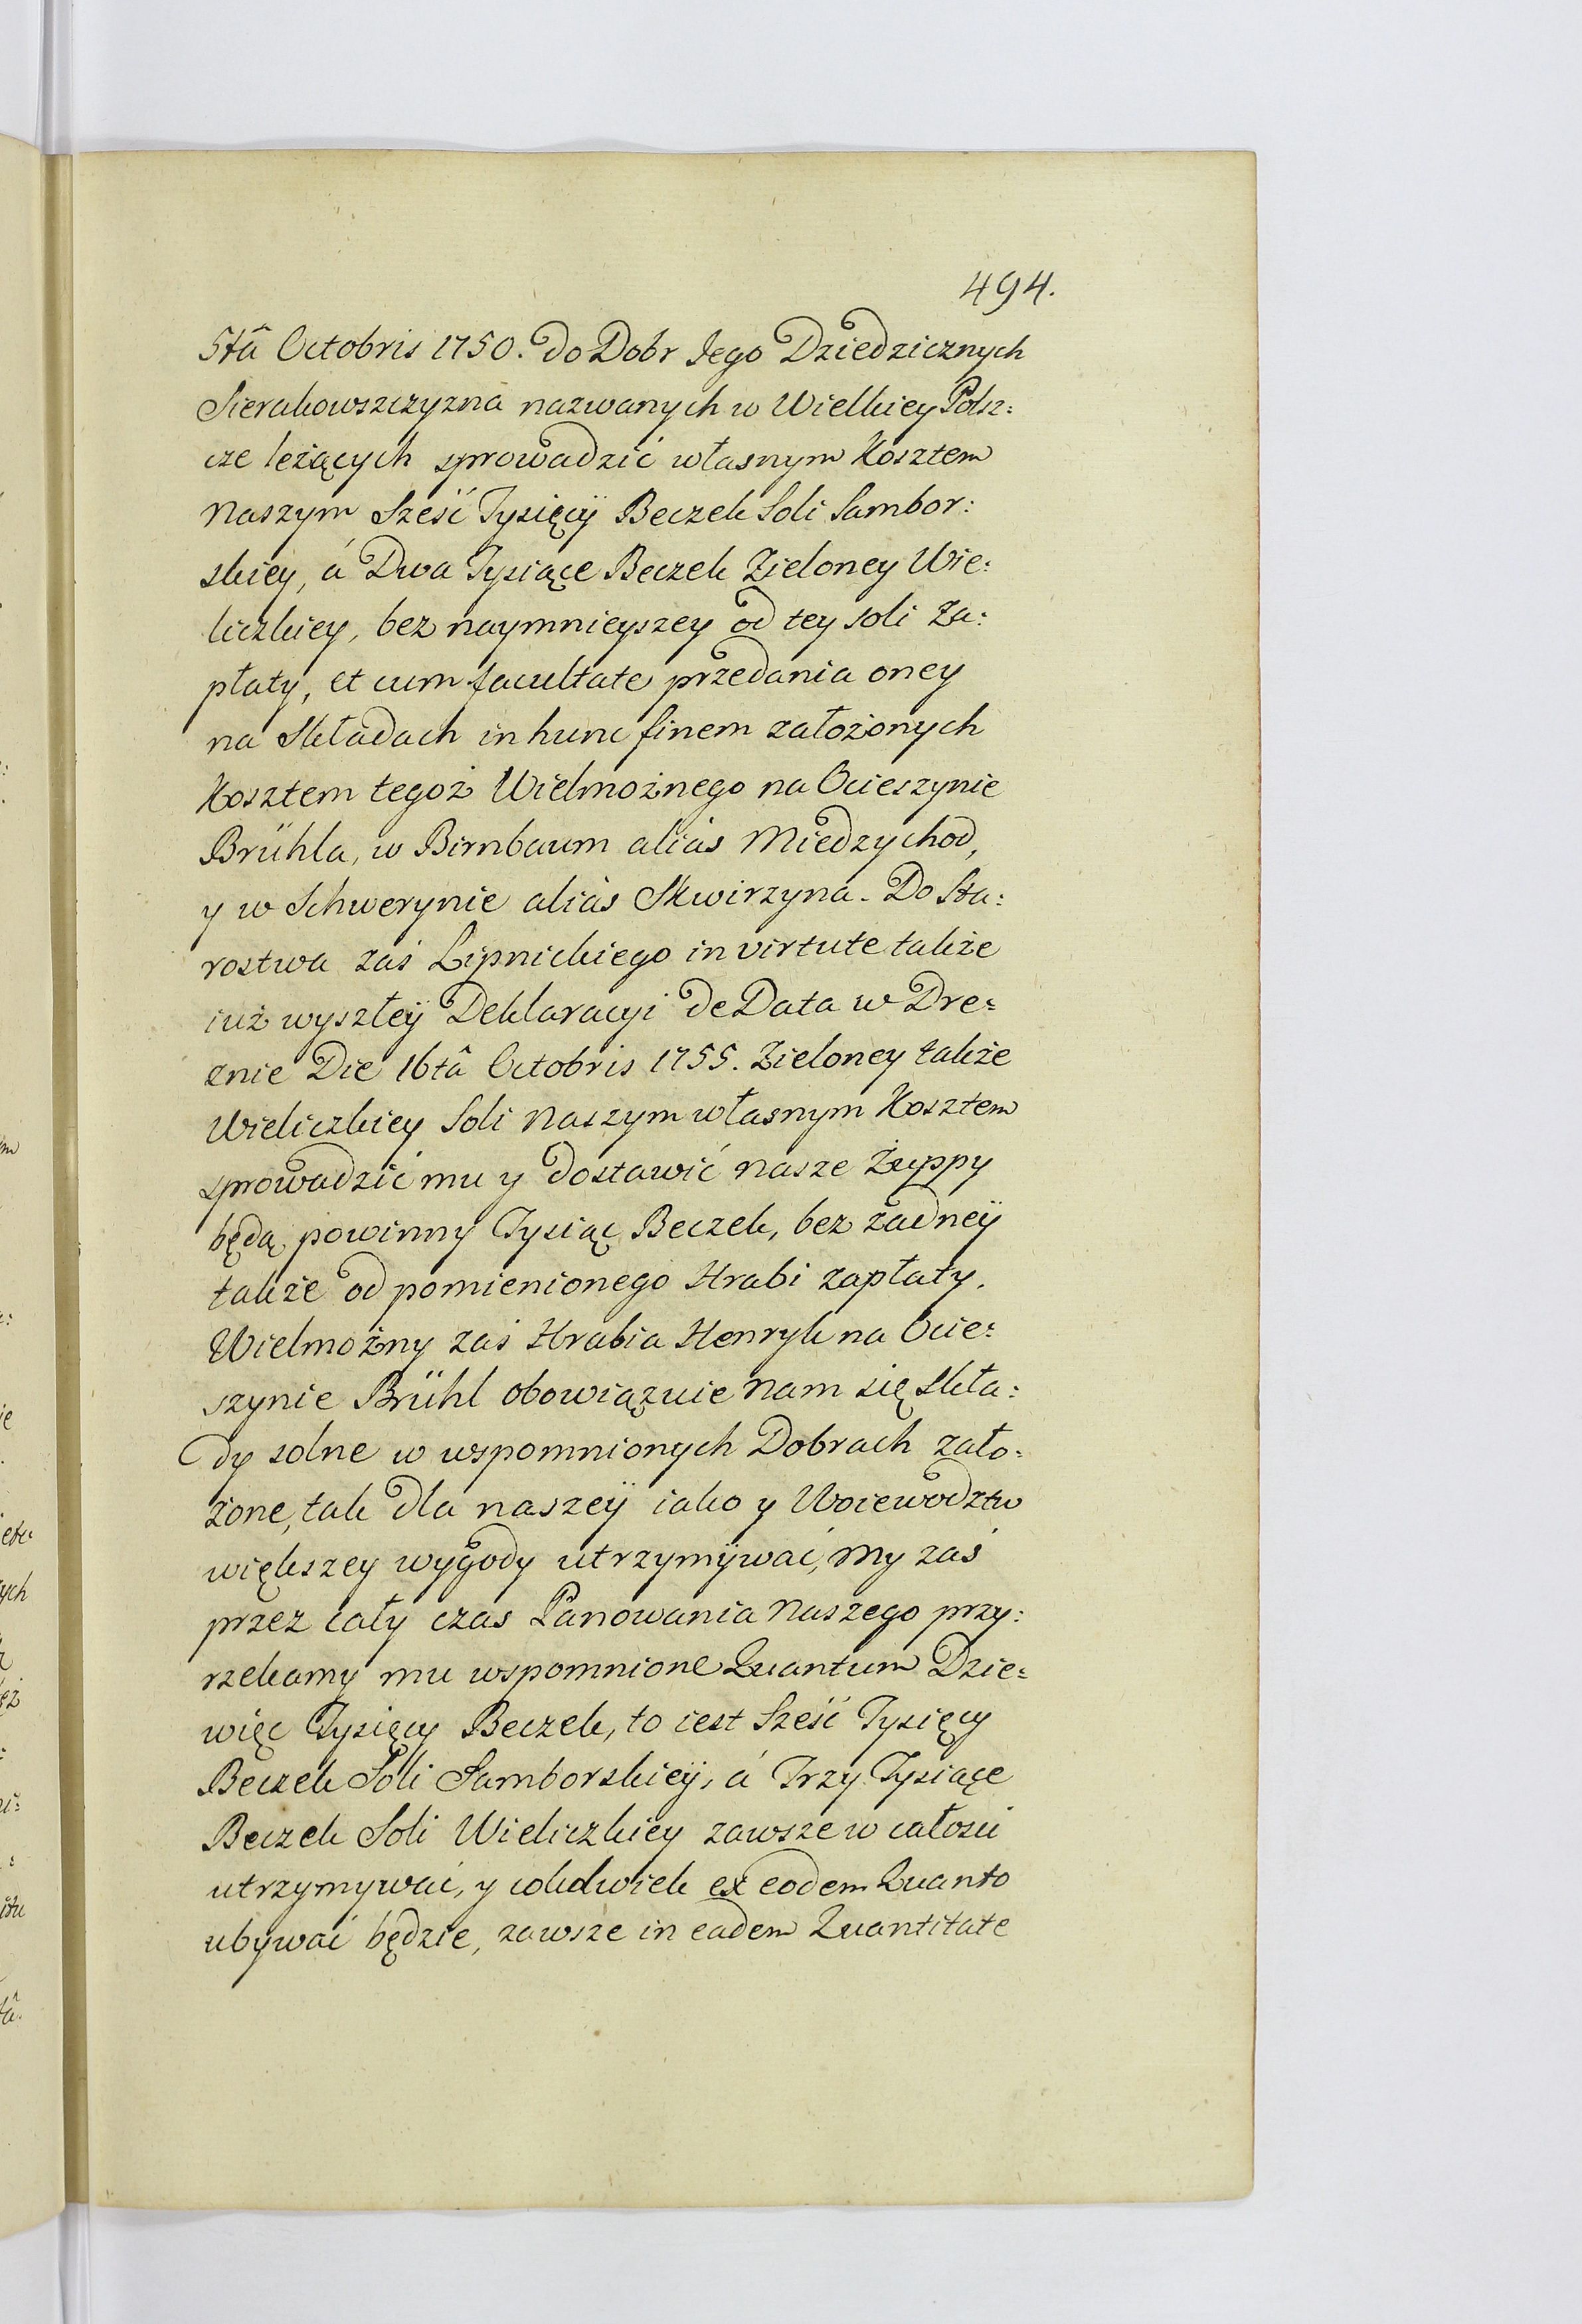 494.
5tâ Octobris 1750. do Dobr Jego Dziedzicznych
Sierakowszczyzna nazwanych w Wielkiey Polsz:
cze leżących sprowadzić własnym Kosztem
Naszym Sześć Tysięcÿ Beczek Soli Sambor:
skiey, á Dwa Tysiące Beczek Zieloney Wie:
liczkiey, bez naymnieyszey od tey soli Za:
płaty, et cum facultate przedania oney
na Składach in hunc finem założonych
Kosztem tegoż Wielmożnego na Ocieszynie
Brühla, w Birnbaum alias Miedzychod,
y w Schwerynie alias Skwirzyna. Do Sta:
rostwa zaś Lipnickiego in virtute także
iuż wyszłeÿ Deklaracyi de Data w Dre:
znie Die 16tâ Octobris 1755. Zieloney także
Wieliczkiey Soli Naszym własnym Kosztem
sprowadzić mu y dostawić Nasze Żuppy
będą powinny Tysiąc Beczek, bez żadneÿ
także od pomienionego Hrabi zapłaty.
Wielmożny zaś Hrabia Henryk na Ocie:
szynie Brühl obowiązuie Nam się skła:
dy solne w wspomnionych Dobrach zało:
żone, tak dla naszeÿ iako y Woiewodztw
większey wygody utrzymÿwać, My zaś
przez cały czas Panowania Naszego przy:
rzekamy mu wspomnione Quantum Dzie:
więc Tysięcy Beczek, to iest Sześć Tysięcy
Beczek Soli Samborskieÿ, á Trzy Tysiące
Beczek Soli Wieliczkiey zawsze w całości
utrzymywać, y cokolwiek ex eodem Quanto
ubywać będzie, zawsze in eadem Quantitate